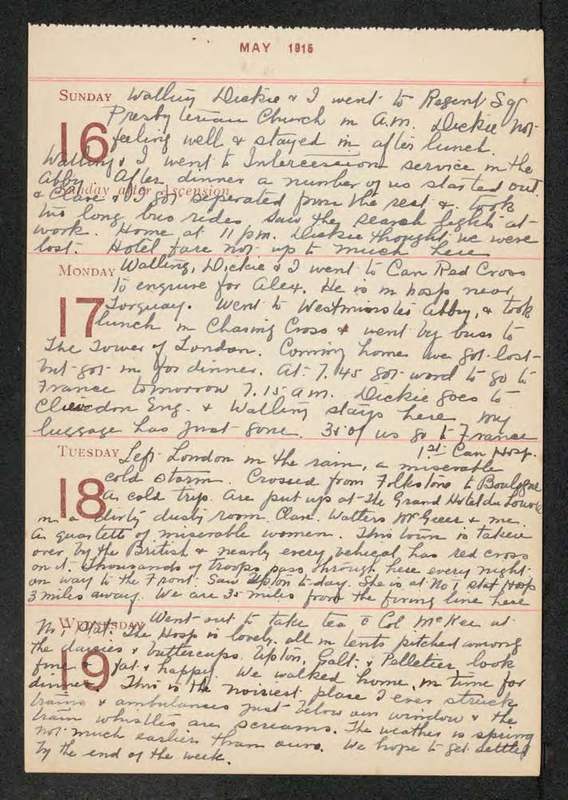 MAY 1915
SUNDAY Walling Dickie & I went to Regent Sqr
16 Presbyterian Church in A.M. Dickie not
feeling well & stayed in after lunch.
Walling & I went to Intercession service in the
Abby. After dinner a number of us started out
Sunday after Ascension
& Clare & I got seperated from the rest & took
two long bus rides, saw the search lights at
work. Home at 11 p.m. Dickie thought we were
lost. Hotel fare not up to much here
MONDAY Walling, Dickie & I went to Can Red Cross
to enquire for Alex. He is in hosp near
17 Torquay. Went to Westminster Abby, & took
lunch in Chasing Cross & went by buss to
The Tower of London. Coming home we got lost
but got in for dinner. At 7.45 got word to go to
France tomorrow 7.15 a.m. Dickie goes to
Clevedon Eng. & Walling stays here. My
luggage has just gone. 35 of us go to France
1st Can Hosp.
TUESDAY Left London in the rain, a miserable
cold storm. Crossed from Folkstone to Boulogne
18 a cold trip. Are put up at the Grand Hotel du Louvre
in a dirty dusty room. Clare, Walters, McGreer & me.
A quartette of miserable women. This town is taken
over by the British & nearly every vehical has red cross
on it. Thousands of troops pass through here every night
on way to the Front. Saw Upton to-day. She is at No 1 Stat Hosp
3 miles away. We are 30 miles from the firing line here
WEDNESDAY Went out to take tea c Col McKee at
No 1 Stat. The Hosp is lovely. all in tents pitched among
the daisies & buttercups. Upton, Galt, & Pelletier look
19 fine & fat & happy. We walked home in time for
dinner. This is the noisiest place I ever struck
trains & ambulances just below our window & the
train whistles are screams. The weather is spring
not much earlier than ours. We hope to get settled
by the end of the week.